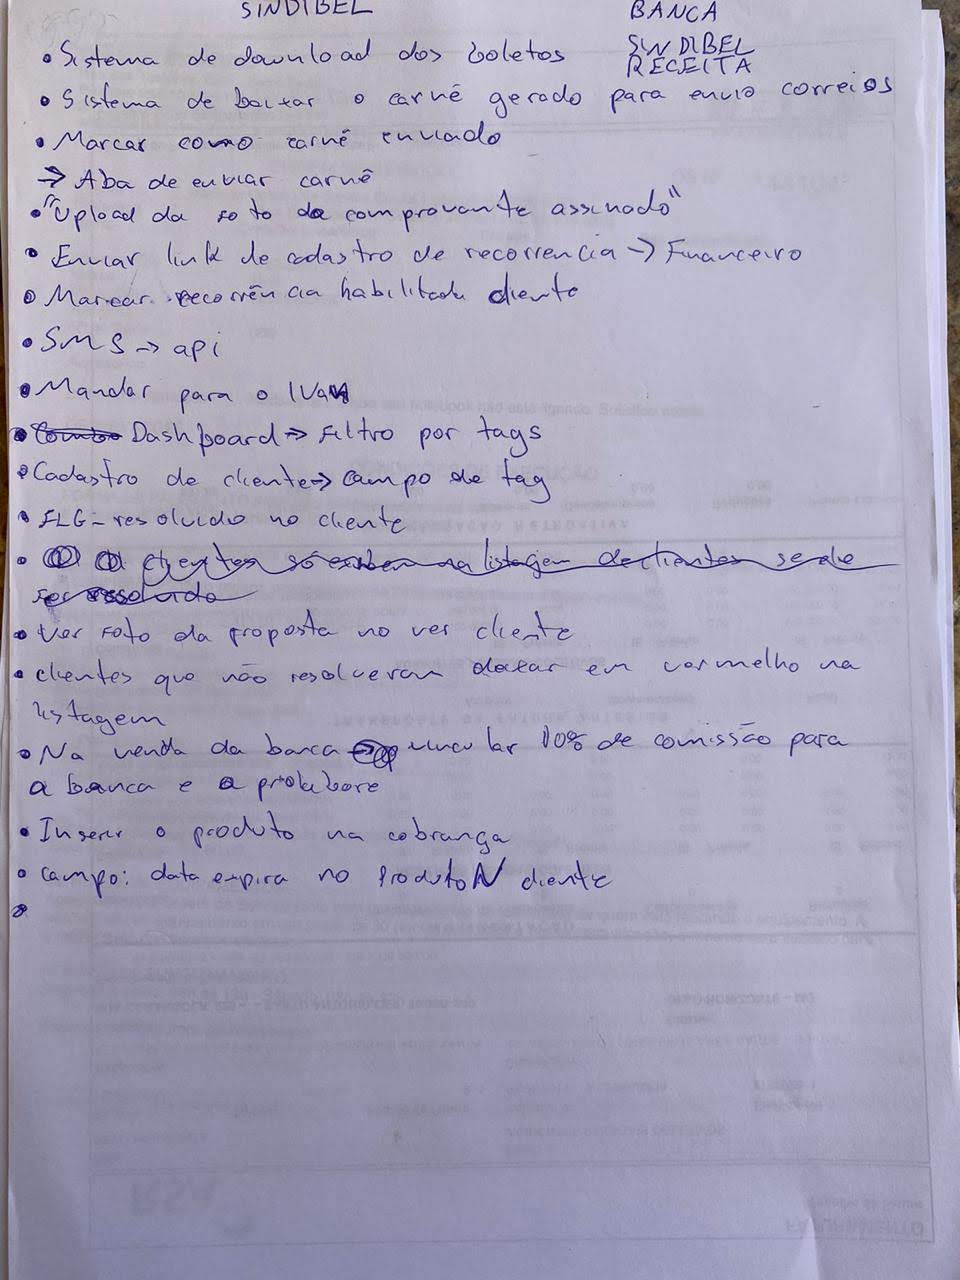 SINDIBEL BANCA
SINDIBEL
RECEITA
• Sistema de download dos boletos
• Sistema de baixar o carnê gerado para envio correios
• Marcar como carnê enviado
→ Aba de enviar carnê
• "Upload da foto da comprovante assinado"
• Enviar link de cadastro de recorrencia → Financeiro
• Marcar recorrência habilitada cliente
• SMS → api
• Mandar para o IVAN
• Dashboard → Filtro por tags
• Cadastro de cliente → campo de tag
• FLG = resolvido no cliente
• Ver foto da proposta no ver cliente
• clientes que não resolveram deixar em vermelho na
listagem
• Na venda da banca vincular 10% de comissão para
a banca e a
• Inserir o produto na cobrança
• campo: data expira no Produto N cliente